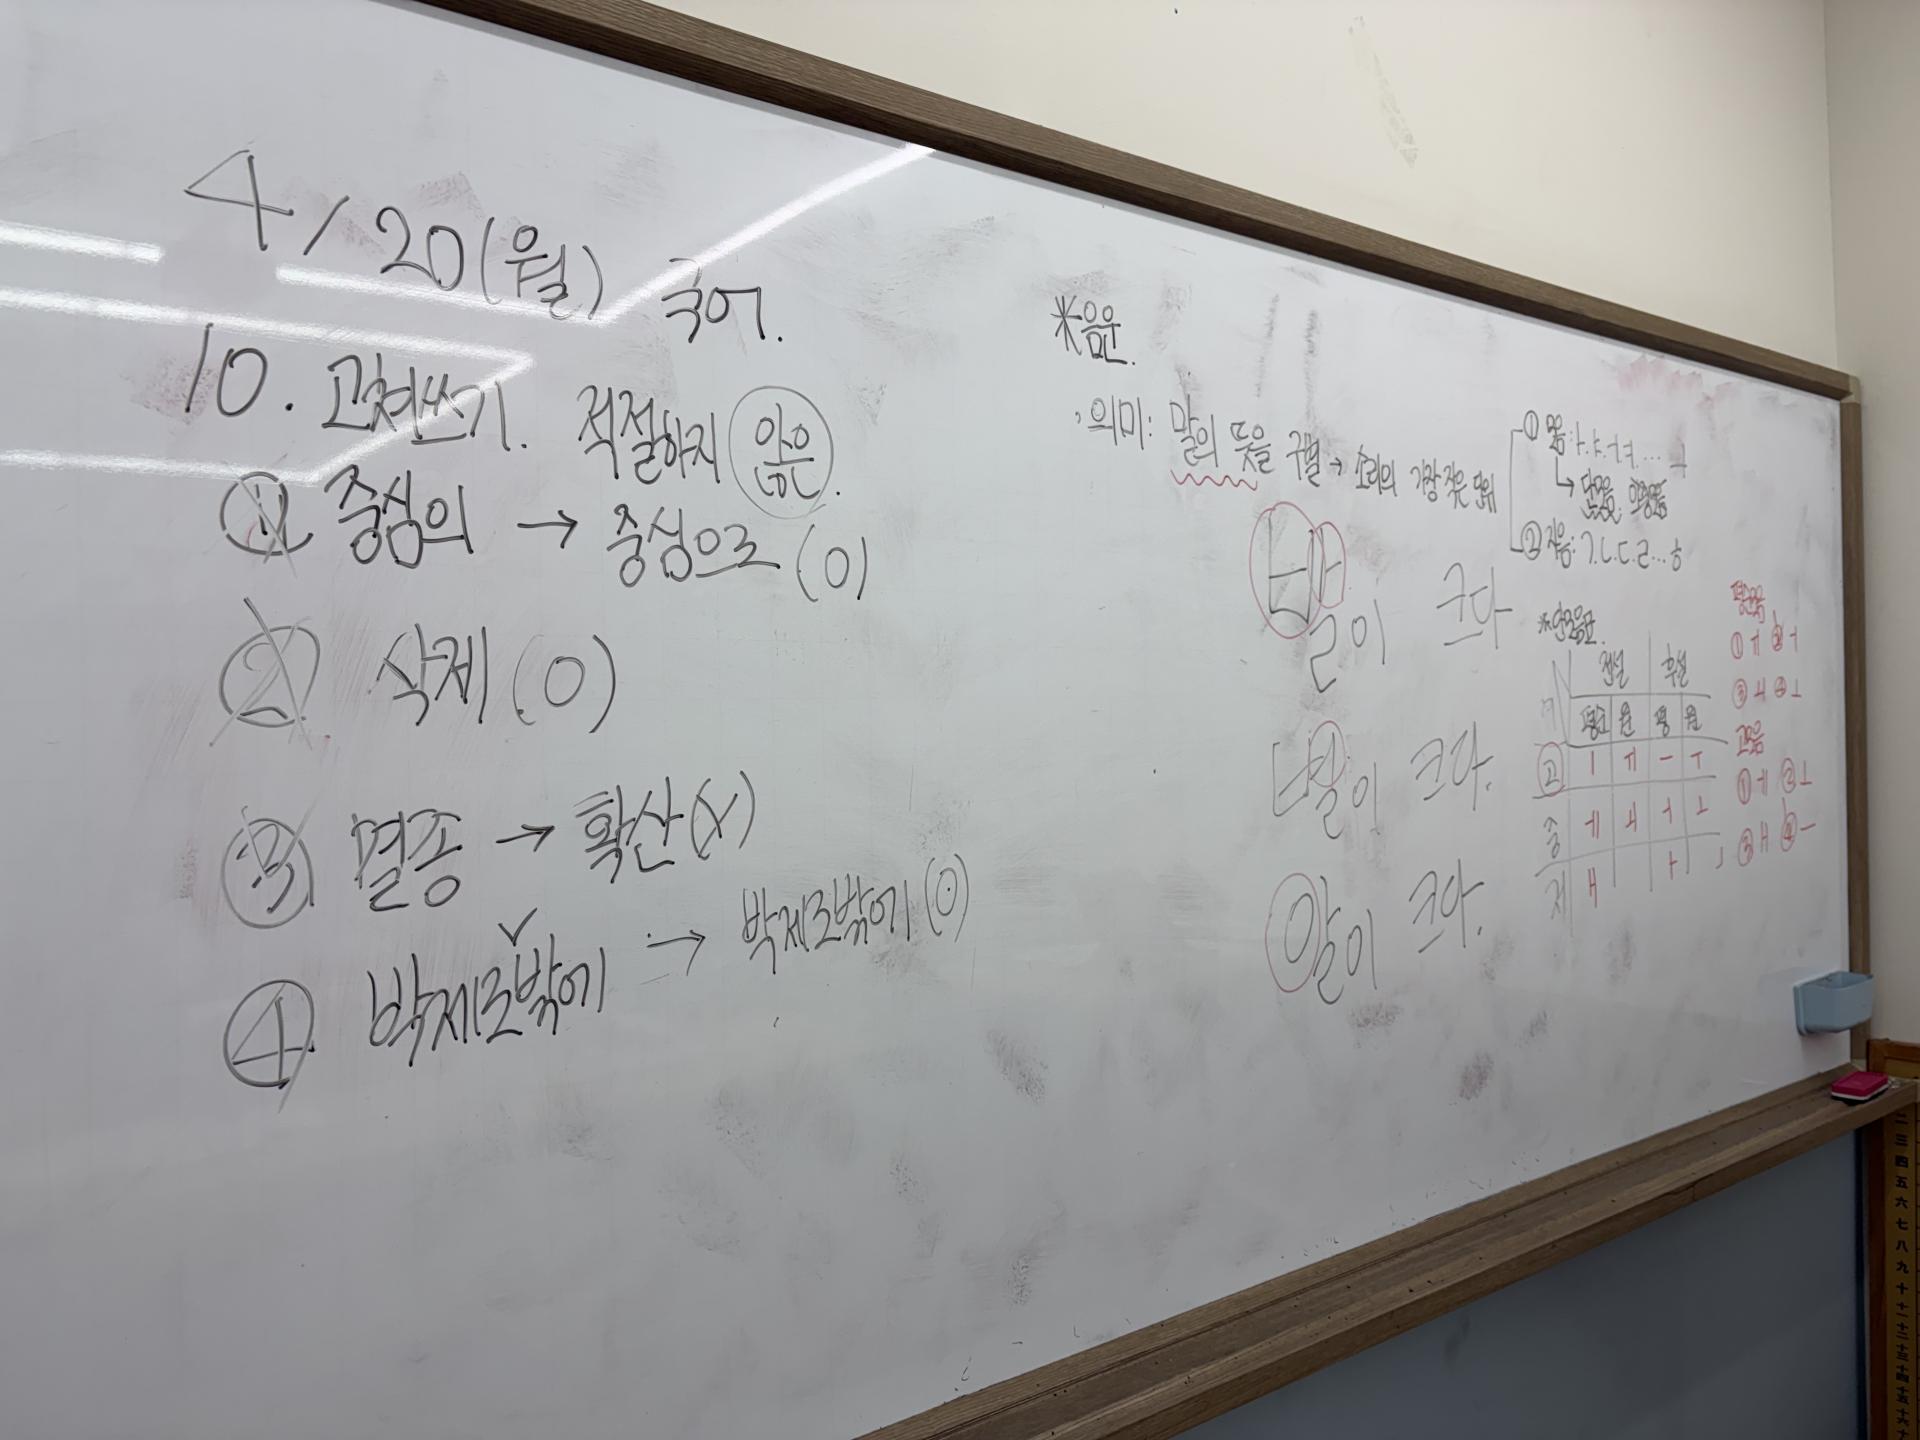 4/20(월) 국어.
10. 고쳐쓰기. 적절하지 않은.
① 중심의 → 중심으로 (O)
② 삭제 (O)
③ 멸종 → 확산 (X)
④ 박제로∨밖에 → 박제로밖에 (O)
※음운.
, 의미: 말의 뜻을 구별 → 소리의 가장 작은 단위
① 모음: ㅏ.ㅑ.ㅓㅕ... ㅢ
↳ 단모음, 이중모음
② 자음: ㄱ.ㄴ.ㄷ.ㄹ...ㅎ
발이 크다
별이 크다.
알이 크다.
※단모음표.
전설 후설
평순 원 평 원
고 ㅣ ㅟ ㅡ ㅜ
중 ㅔ ㅚ ㅓ ㅗ
저 ㅐ ㅏ
평순모음
① ㅔ ② ㅓ
③ ㅚ ④ ㅗ
고모음
① ㅔ ② ㅗ
③ ㅐ ④ ㅡ
二
三
四
五
六
七
八
九
十
十一
十二
十三
十四
十五
十六